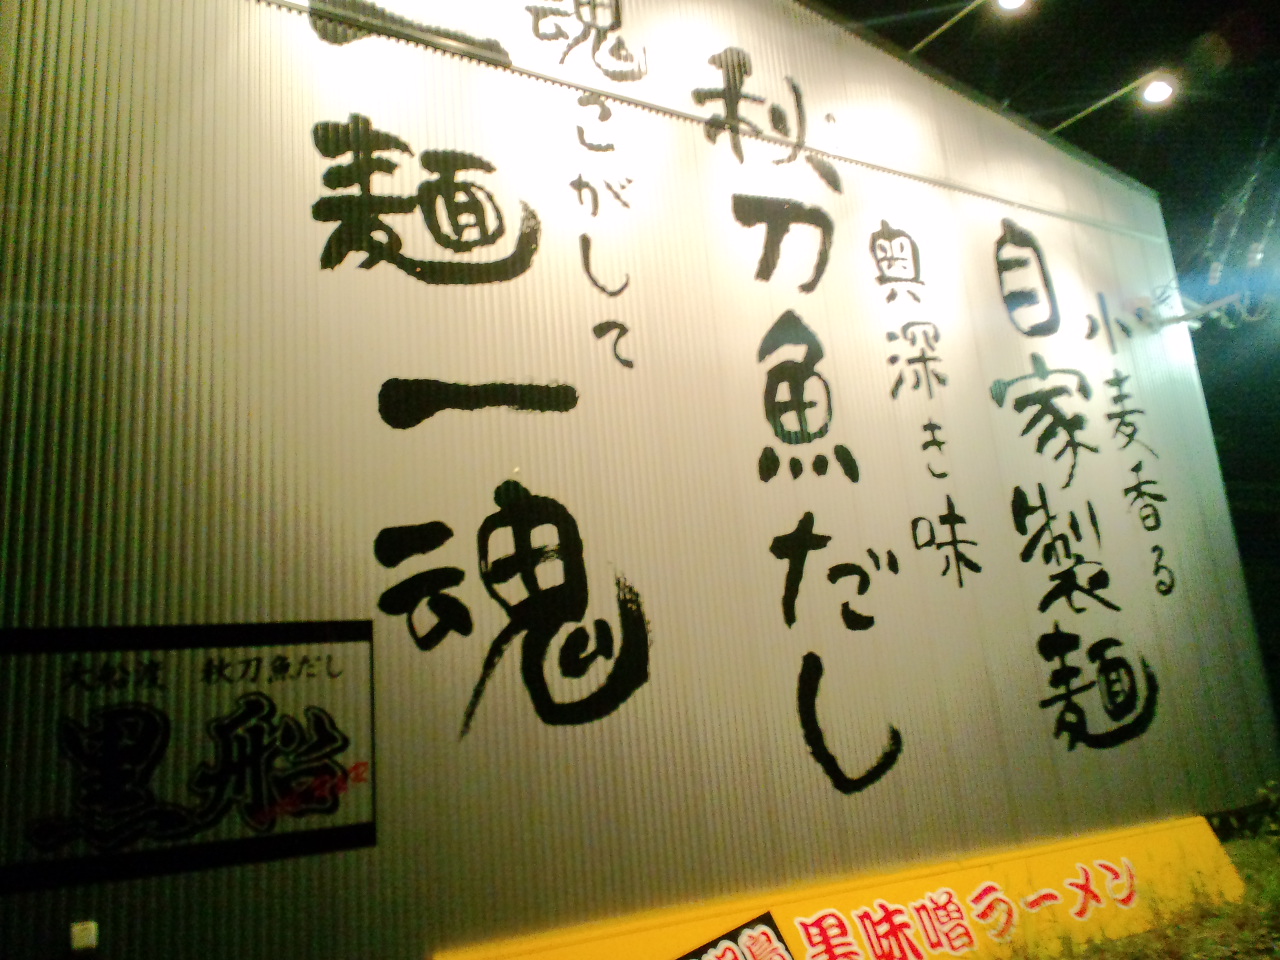 小麦香る
自家製麺
奥深き味
秋刀魚だし
魂こがして
一麺一魂
大船渡 秋刀魚だし
黒船
黒味噌ラーメン